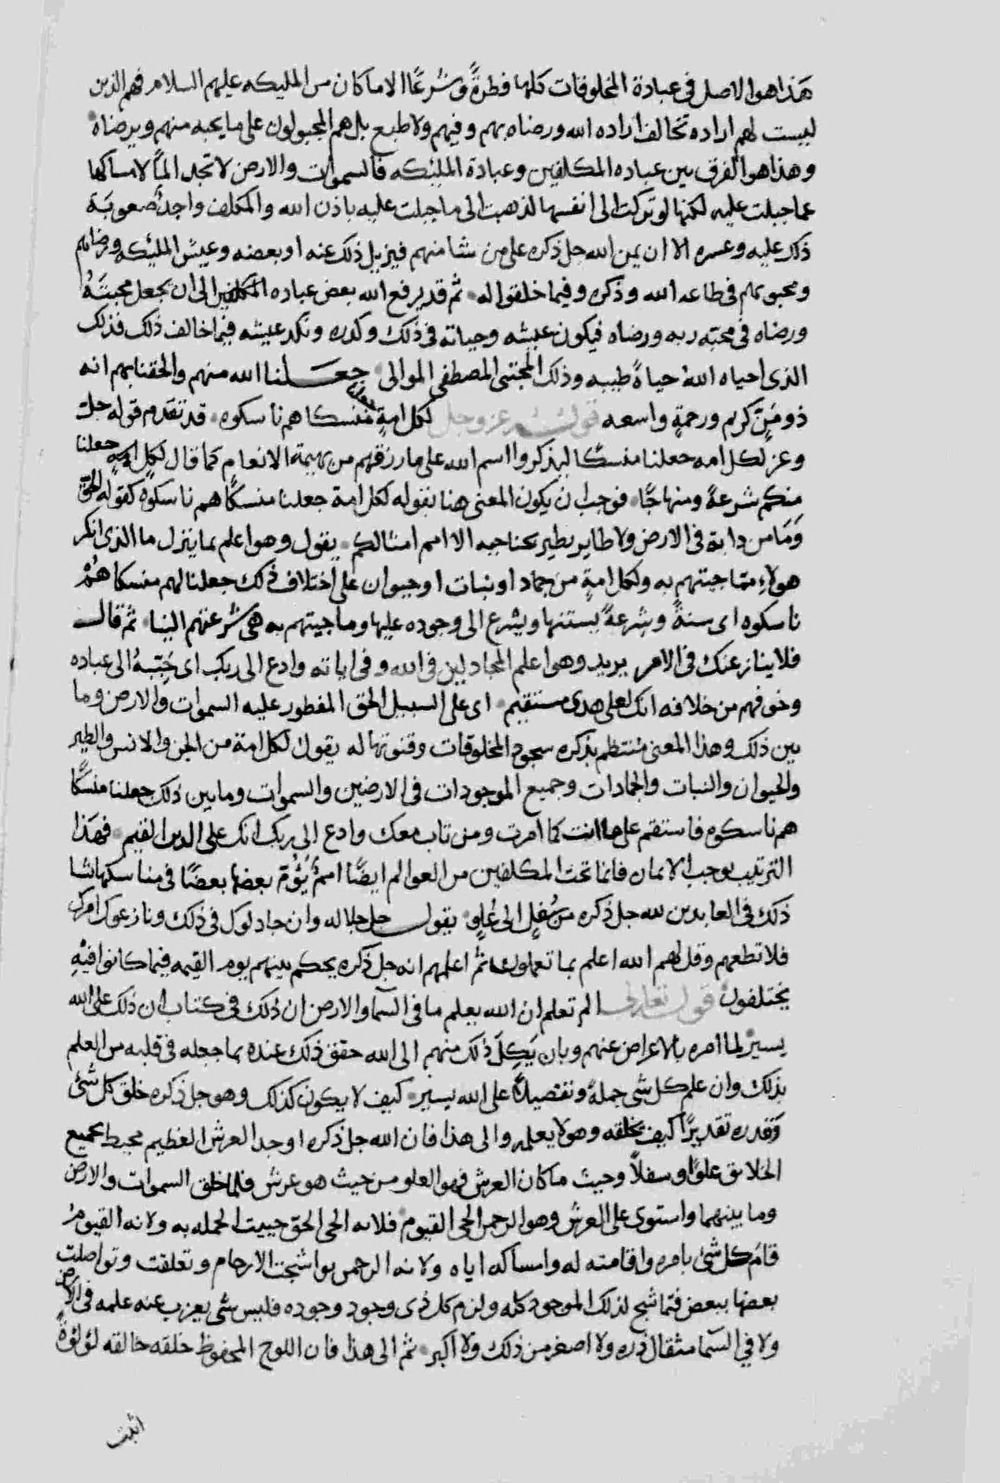 هذا هو الاصل فى عبادة المخلوقات كلها فطرةً وشرعًا الا ما كان من المليكه عليهم السلام فهم الذين
ليست لهم اراده تخالف اراده الله ورضاه بهم وفيهم ولا طبع بل هم المجبولون على ما يحبه منهم ويرضاه
وهذا هو الفرق بين عباده المكلفين وعبادة المليكه فالسموات والارض لا تجد الماً لامساكها
عما جبلت عليه لكنها لو تركت الى انفسها لذهبت الى ما جبلت عليه باذن الله والمكلف واجدٌ صعوبة
ذلك عليه وعسره الا ان يمن الله جل ذكره على من شا منهم فيزيل ذلك عنه او بعضه وعيش المليكه ورضاهم
ومحبوبهم فى طاعه الله وذكره وفيما خلقوا له ثم قد يرفع الله بعض عباده المكلفين الى ان يجعل محبتهُ
ورضاه فى محبه ربه ورضاه فيكون عيشه وحياته فى ذلك وكدره ونكد عيشه فيما خالف ذلك فذلك
الذى احياه الله حياةً طيبه وذلك المجتبى المصطفى الموالى جعلنا الله منهم والحقنا بهم انه
ذو منٍ كريم ورحمةٍ واسعه قوله عز وجل لكل امةٍ منسكا هم ناسكوه قد تقدم قوله جل
وعز لكل امه جعلنا منسكًا ليذكروا اسم الله على ما رزقهم من بهيمة الانعام كما قال لكلٍ جعلنا
منكم شرعةً ومنهاجًا فوجب ان يكون المعنى هنا بقوله لكل امة جعلنا منسكًا هم ناسكوه كقوله الحق
وما من دابة فى الارض ولا طاير يطير بجناحيه الا امم امثالكم يقول وهو اعلم بما ينزل ما الذى انكر
هولاءِ مما جيتهم به ولكل امةٍ من جماد او نبات او حيوان على اختلاف ذلك جعلنا لهم منسكا هُمْ
ناسكوه اى سنةً وشرعةً يستنها ويشرع الى وجوده عليها وما جيتهم به هى شرعتهم الينا ثم قال
فلا ينازعنك فى الامر يريد وهو اعلم المجادلين فى الله وفى اياته وادع الى ربك اى حببهُ الى عباده
وخوفهم من خلافه انك لعلى هدى مستقيم اى على السبيل الحق المفطور عليه السموات والارض وما
بين ذلك وهذا المعنى منتظم بذكره سجود المخلوقات وقنوتها له يقول لكل امة من الجن والانس والطير
والحيوان والنبات والجمادات وجميع الموجودات فى الارضين والسموات وما بين ذلك جعلنا منسكًا
هم ناسكوه فاستقم على ما انت كما امرت ومن تاب معك وادع الى ربك انك على الدين القيم فهذا
الترتيب يوجب الايمان فانما تحت المكلفين من العوالم ايضًا اممٌ يَؤُمّ بعضها بعضًا فى مناسكها شا
ذلك فى العابدين لله جل ذكره من سُفلٍ الى عُلوٍ يقول جل جلاله وان جادلوك فى ذلك ونازعوك امرك
فلا تطعهم وقل لهم الله اعلم بما تعملون ثم اعلمهم انه جل ذكره يحكم بينهم يوم القيمه فيما كانوا فيه
يختلفون قوله تعالى الم تعلم ان الله يعلم ما فى السما والارض ان ذلك فى كتاب ان ذلك على الله
يسير لما امره بالاعراض عنهم وبان يَكِلَ ذلك منهم الى الله حقق ذلك عنده بما جعله فى قلبه من العلم
بذلك وان علم كل شى جملةً وتفصيلاً على الله يسير كيف لا يكون كذلك وهو جل ذكره خلق كل شئ
وَقدره تقديرًا كيف يخلقه وهو لا يعلمه والى هذا فان الله جل ذكره اوجد العرش العظيم محيط بجميع
الخلايق علوًا وسفلاً وحيث ما كان العرش فهو العلو من حيث هو عرش فلما خلق السموات والارض
وما بينهما واستوى على العرش وهو الرحمن الحى القيوم فلانه الحى الحق حييت الجمله به ولانه القيومُ
قام كل شئ بامره واقامته له وامساكه اياه ولانه الرحمن تواشجت الارحام وتعلقت وتواصلت
بعضها ببعض فتماشج لذلك الموجود كله ولزم كل ذى وجود وجوده فليس شى يعزب عنه علمه فى الارض
ولا فى السما مثقال ذره ولا اصغر من ذلك ولا اكبر ثم الى هذا فان اللوح المحفوظ خلقه خالقه لؤلؤةً